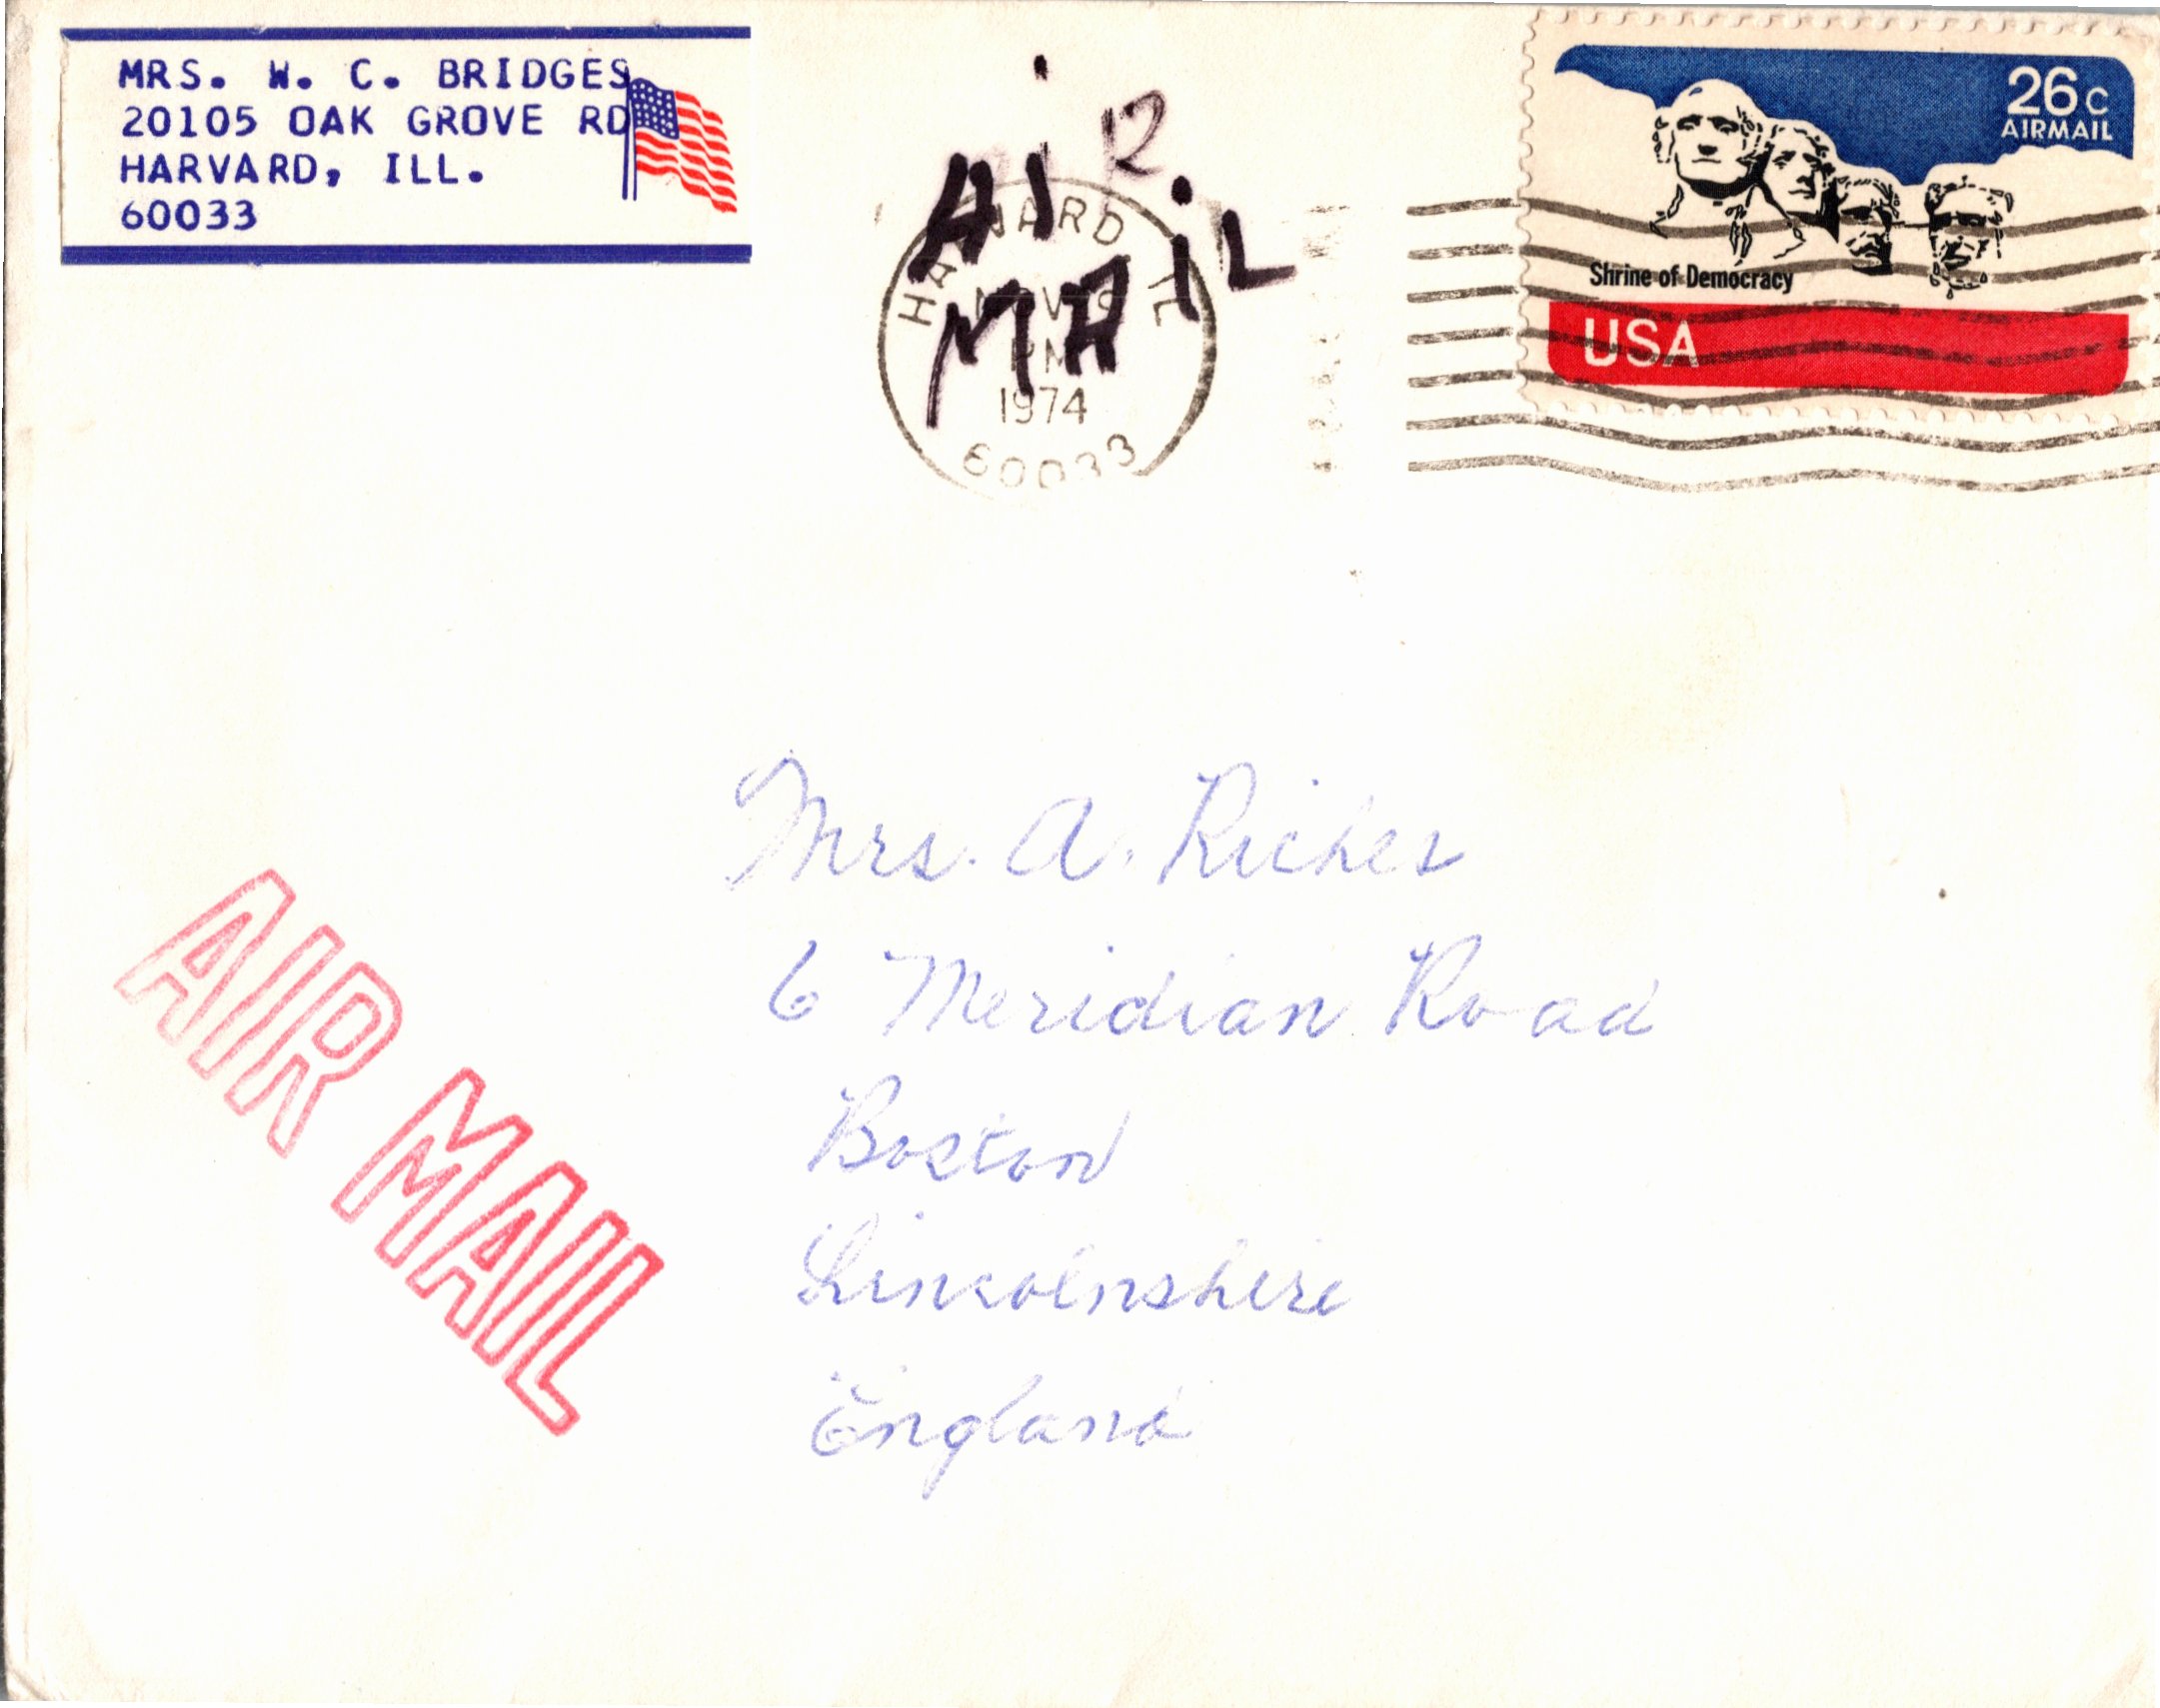 MRS. W. C. BRIDGES
20105 OAK GROVE RD
HARVARD, ILL.
60033
AiR
MAiL
HARVARD IL
NOV
PM
1974
60033
26c
AIRMAIL
Shrine of Democracy
USA
Mrs. A. Riches
6 Meridian Road
Boston
Lincolnshire
England
AIR MAIL